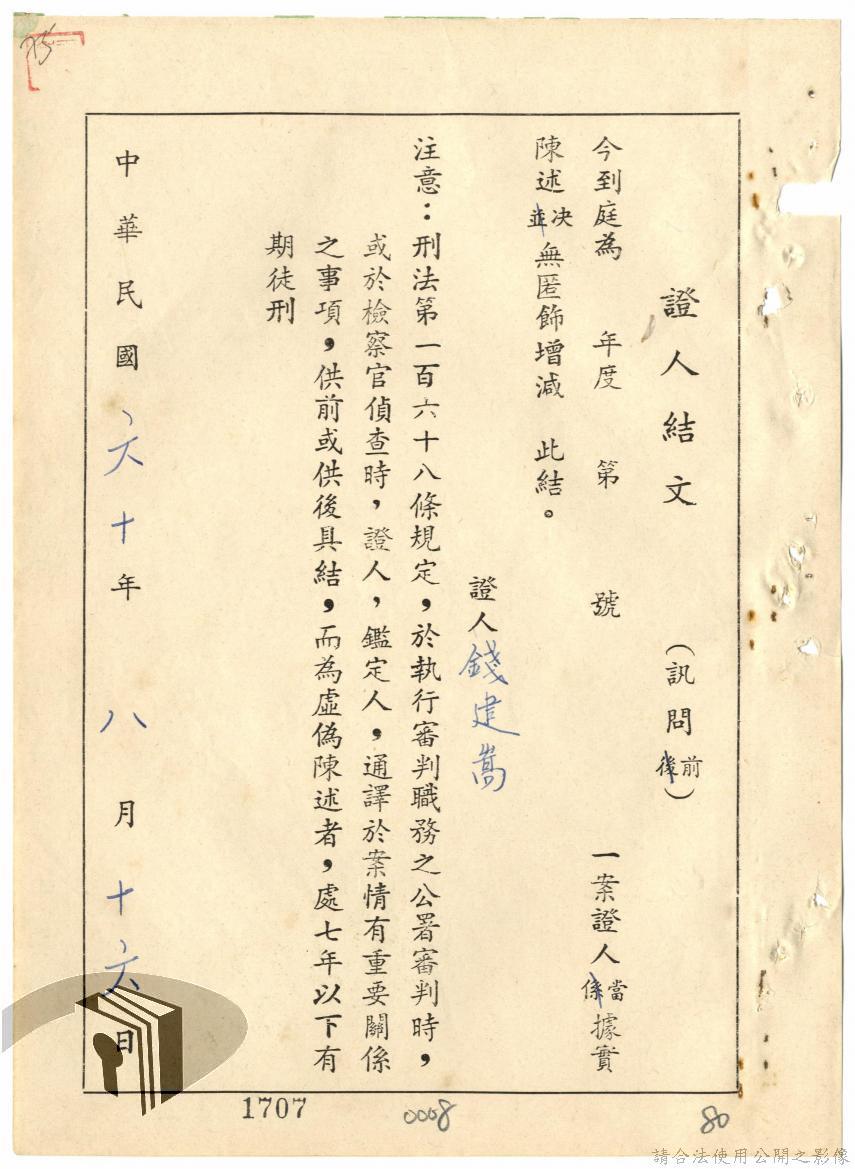 證人結文（訊問前後）
今到庭為　年度　第　號　一案證人當係據實
陳述決並無匿飾增減　此結。
證人錢建嵩
注意：刑法第一百六十八條規定，於執行審判職務之公署審判時，
或於檢察官偵查時，證人，鑑定人，通譯於案情有重要關係
之事項，供前或供後具結，而為虛偽陳述者，處七年以下有
期徒刑
中華民國六十年八月十六日
1707
0008
80
請合法使用公開之影像